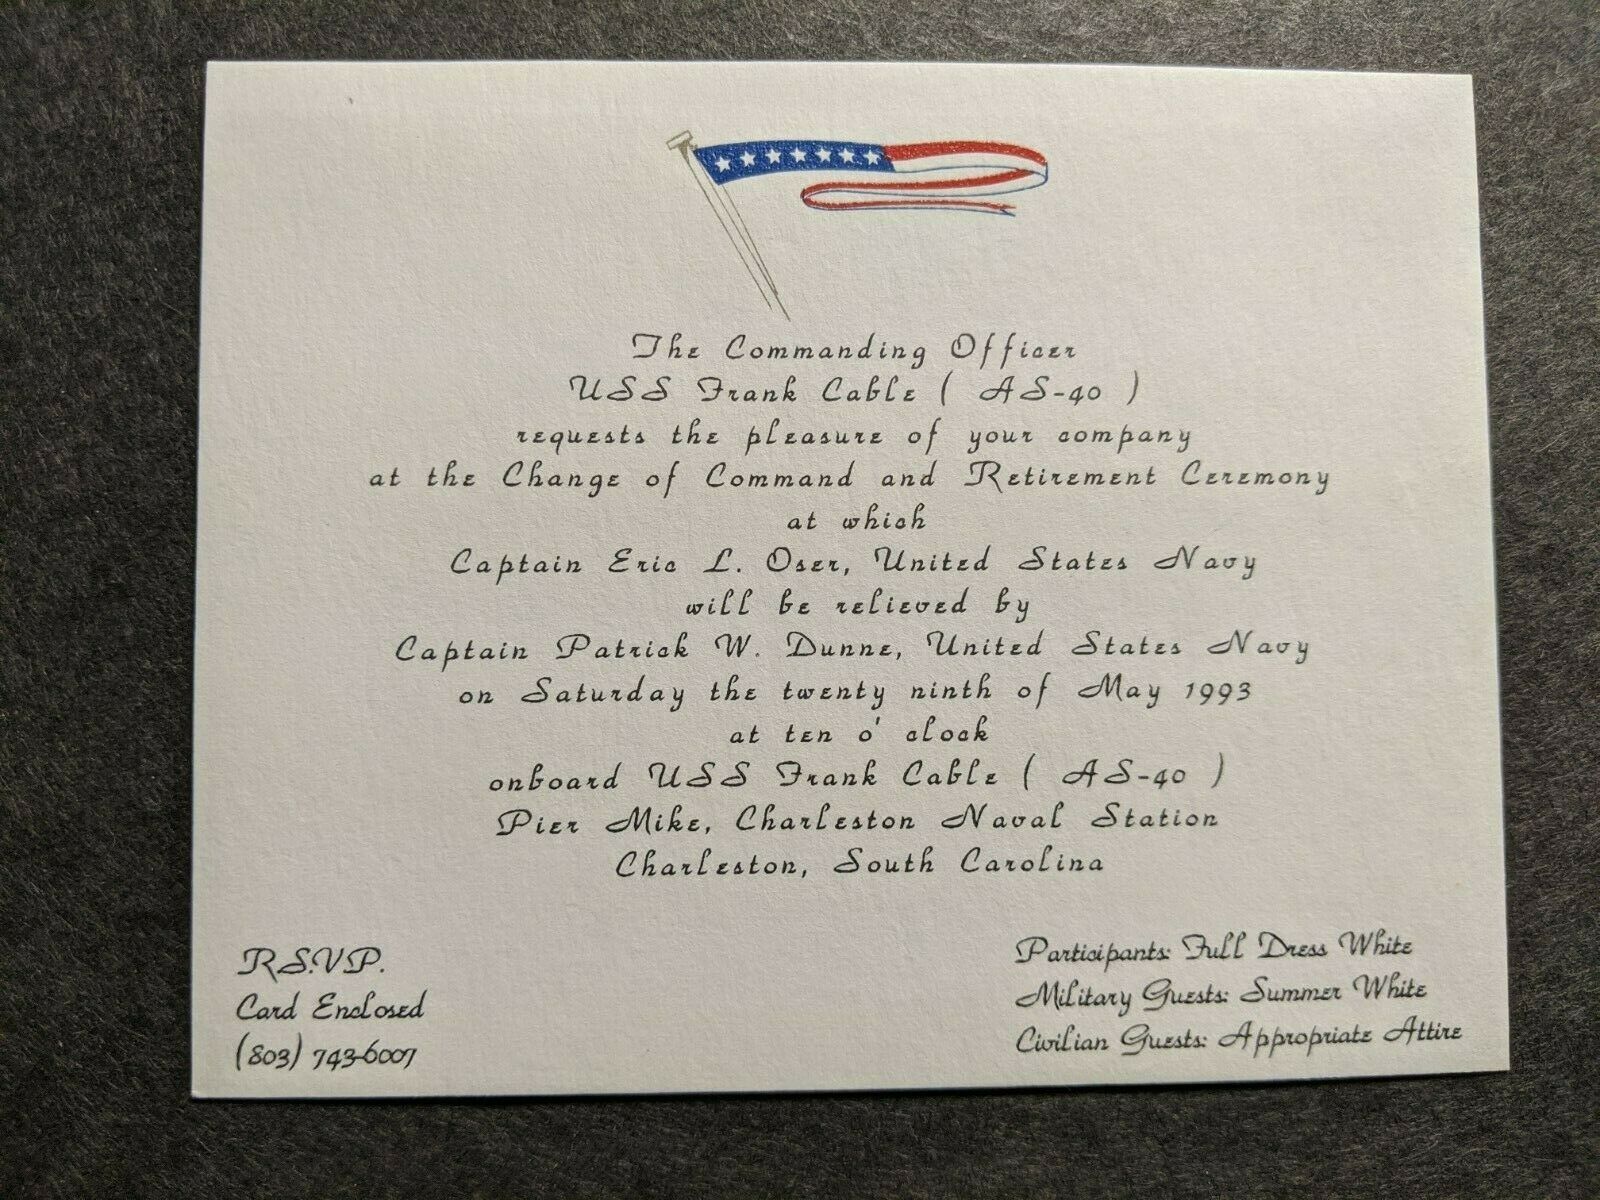 The Commanding Officer
USS Frank Cable ( AS-40 )
requests the pleasure of your company
at the Change of Command and Retirement Ceremony
at which
Captain Eric L. Oser, United States Navy
will be relieved by
Captain Patrick W. Dunne, United States Navy
on Saturday the twenty ninth of May 1993
at ten o' clock
onboard USS Frank Cable ( AS-40 )
Pier Mike, Charleston Naval Station
Charleston, South Carolina
R.S.V.P.
Card Enclosed
(803) 743-6007
Participants: Full Dress White
Military Guests: Summer White
Civilian Guests: Appropriate Attire